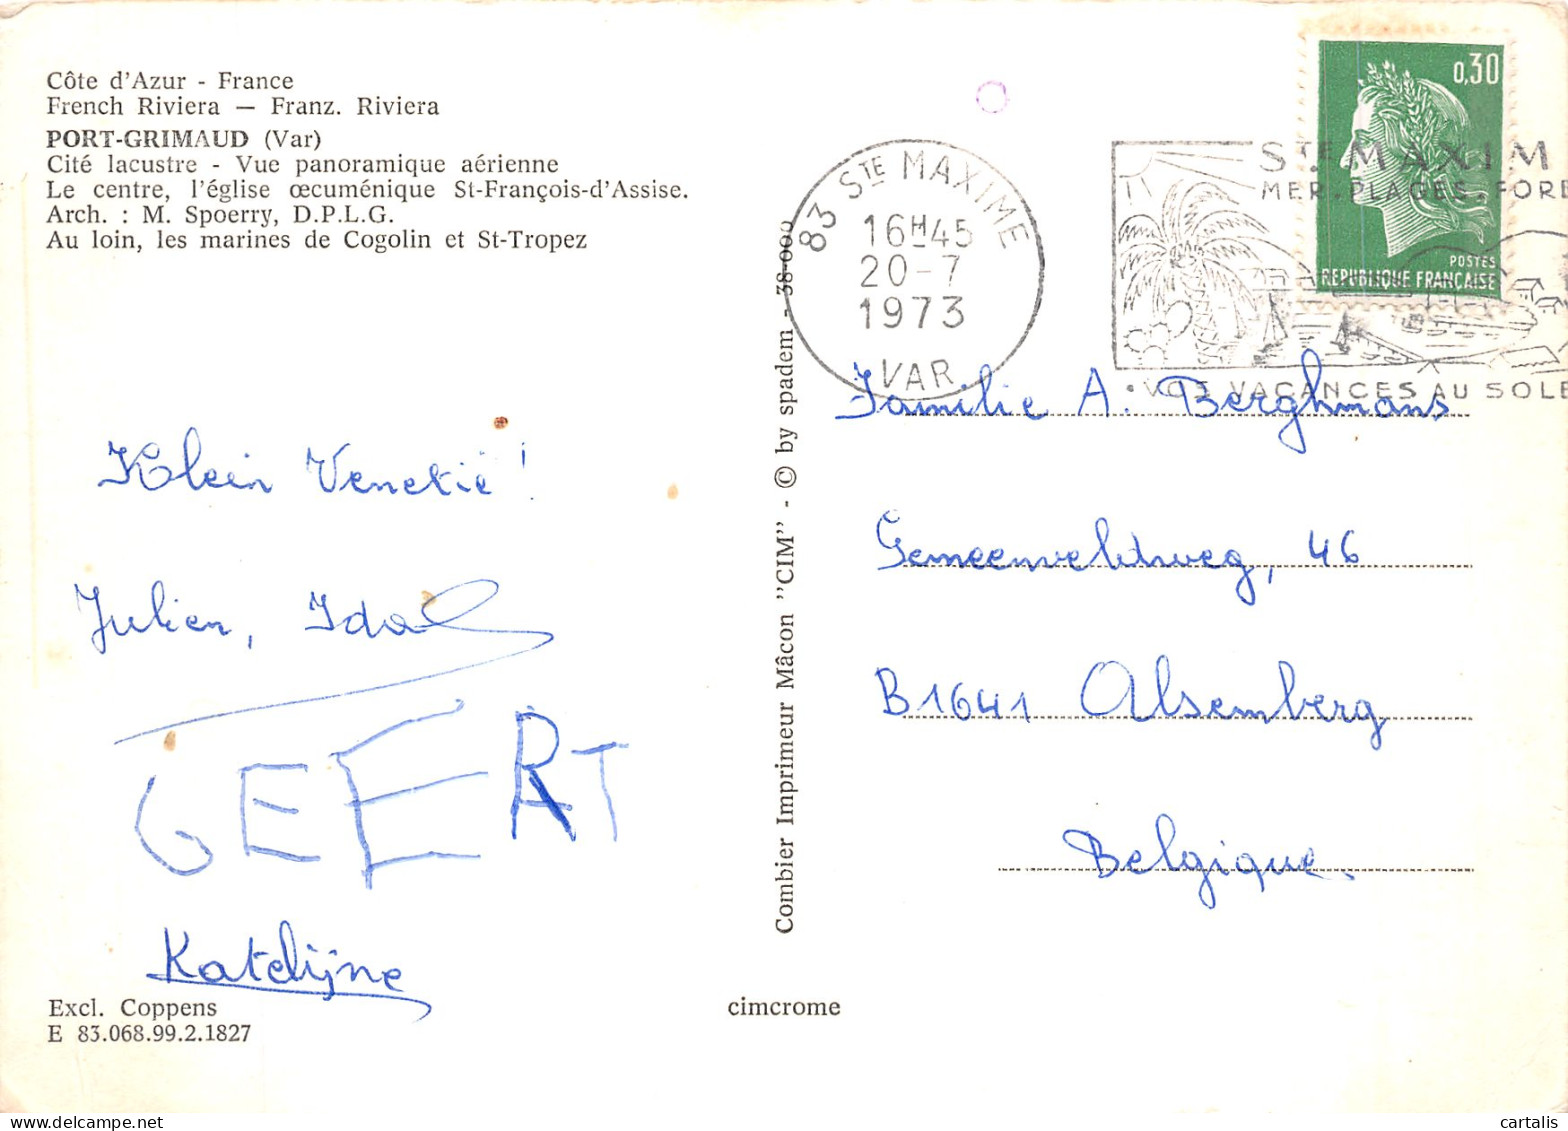 Côte d'Azur - France
French Riviera — Franz. Riviera
PORT-GRIMAUD (Var)
Cité lacustre - Vue panoramique aérienne
Le centre, l'église œcuménique St-François-d'Assise.
Arch. : M. Spoerry, D.P.L.G.
Au loin, les marines de Cogolin et St-Tropez
Klein Venetië !
Julien, Ida
GEERT
Katelijne
Excl. Coppens
E 83.068.99.2.1827
Combier Imprimeur Mâcon "CIM" - © by spadem - 38-000
cimcrome
83 STE MAXIME
16H45
20-7
1973
VAR
STE MAXIM
MER. PLAGES. FORE
• VOS VACANCES AU SOLE
0,30
POSTES
REPUBLIQUE FRANÇAISE
Familie A. Berghmans
Gemeenveldweg, 46
B1641 Alsemberg
Belgique
cartalis